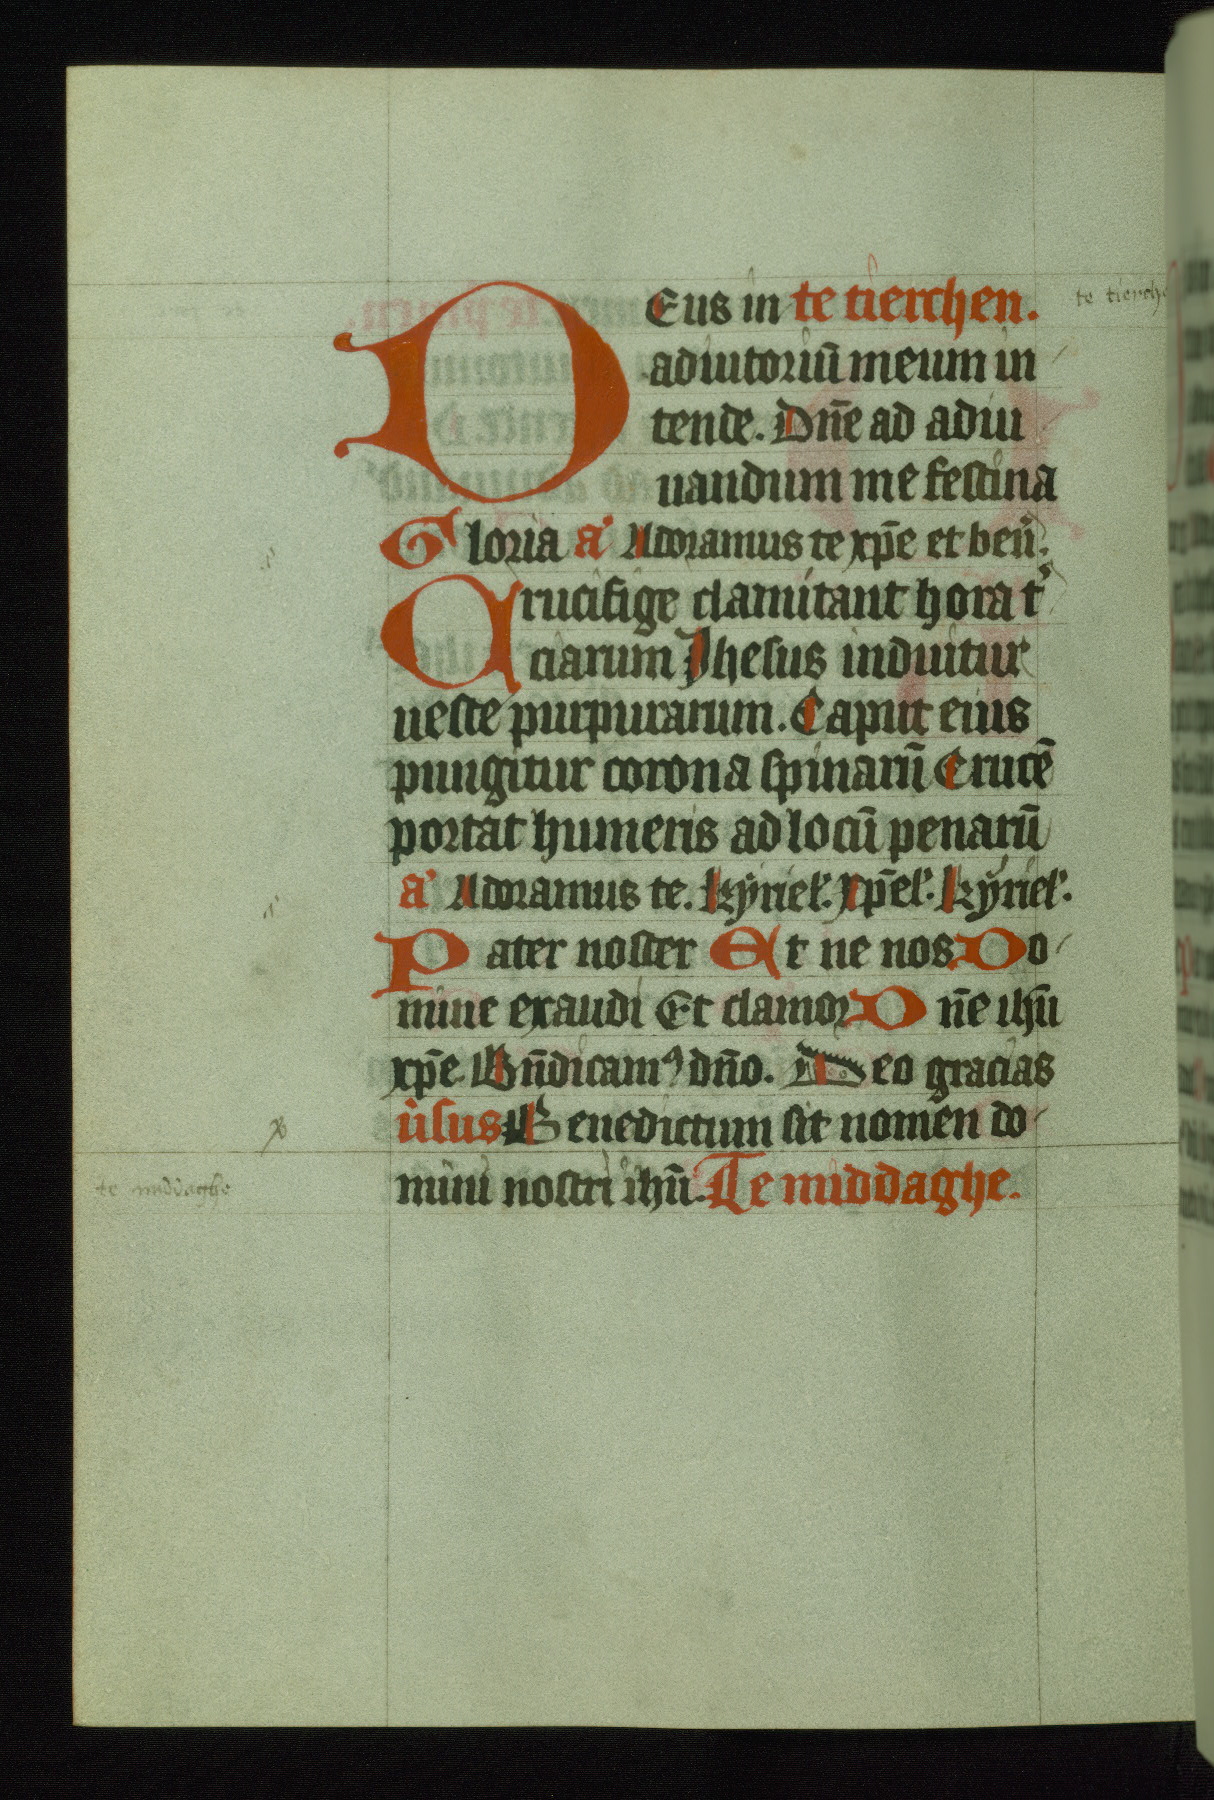 DEus in te tierchen.
te tierche
adiutoriū meum in
tende. Dn̄e ad adiu
uandum me festina
Gloria a' Adoramus te xp̄e et ben̄.
Crucifige clamitant hora t'
ciarum Jhesus induitur
ueste purpurarum. Caput eius
pungitur corona spinarū Crucē
portat humeris ad locū penarū
a' Adoramus te. kyriel'. xp̄el'. kyriel'.
Pater noster Et ne nos Do
mine exaudi Et clamor Dn̄e ihū
xp̄e. Bn̄dicamꝰ dn̄o. Deo gracias
ùsus Benedictum sit nomen do
mini nostri ihū. Te middaghe.
te middaghe